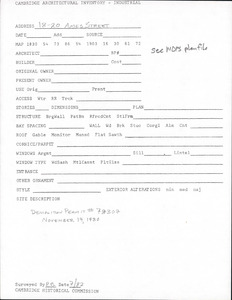 CAMBRIDGE ARCHITECTURAL INVENTORY - INDUSTRIAL
ADDRESS 18-20 Ames Street
DATE Add SOURCE
MAP 1830 54 73 86 94 1903 16 30 51 72
see MOPS plan file
ARCHITECT BP#
BUILDER Cost
ORIGINAL OWNER
PRESENT OWNER
USE Orig Prest
ACCESS Wtr RR Truk
STORIES DIMENSIONS PLAN
STRUCTURE BrgWall PstBm StlFrm
BAY SPACING WALL Wd Brk Stuc CorgI Alm Cnt
ROOF Gable Monitor Mansd Flat Sawth
CORNICE/PARPET
WINDOWS Arngmt Sill Lintel
WINDOW TYPE WdSash MtlCasmt FlrGlas
ENTRANCE
OTHER ORNAMENT
STYLE EXTERIOR ALTERATIONS min mod maj
SITE DESCRIPTION
Demolition Permit #
November 19, 1980
Surveyed By RB Date 7/82
CAMBRIDGE HISTORICAL COMMISSION